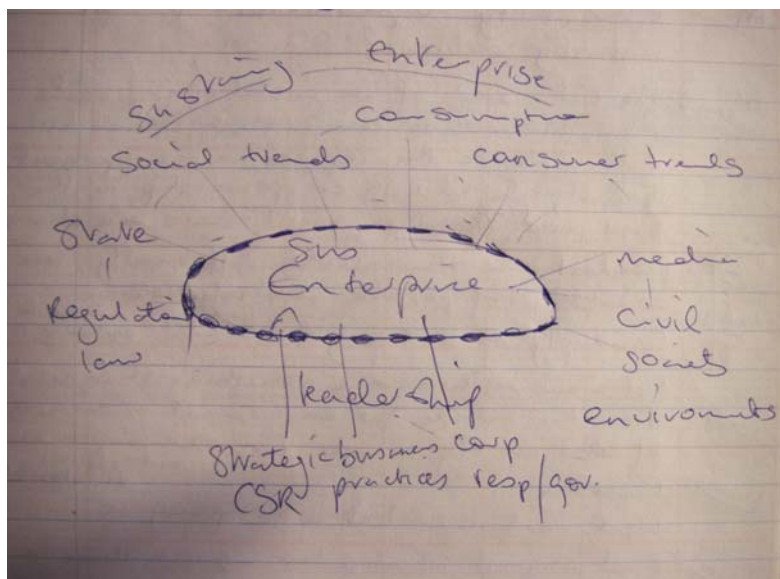 sustaining enterprise
consumption
social trends consumer trends
State
Sus
Enterprise
media
Regulation
law
civil
society
environments
leadership
Strategic business corp
CSR practices resp/gov.